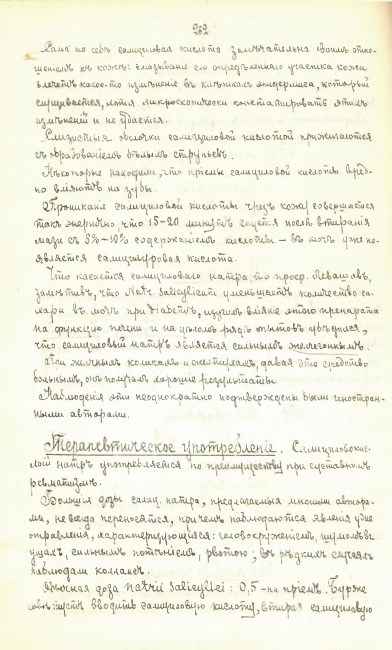 282
Сама по себѣ салициловая кислота замѣчательна своимъ отно-
шеніемъ къ кожѣ: смазываніе ею опредѣленнаго участка кожи
влечетъ какое-то измѣненіе въ клѣткахъ эпидермиса, который
слущивается, хотя микроскопически констатировать этихъ
измѣненій и не удается.
Слизистыя оболочки салициловой кислотой прижигаются
съ образованіемъ бѣлыхъ струпьевъ.
Нѣкоторые находятъ, что пріемы салициловой кислоты вред-
но вліяютъ на зубы.
Проникание салициловой кислоты чрезъ кожу совершается
такъ энергично, что 15-20 минутъ спустя послѣ втиранія
мази съ 5%-10% содержаніемъ кислоты – въ мочѣ уже по-
является салицилуровая кислота.
Что касается салициловаго натра, то проф. Левашовъ,
замѣтивъ, что Natr. Salicylicum уменьшаетъ количество са-
хара въ мочѣ при діабетѣ, изучилъ вліяніе этого препарата
на функцію печени и на цѣломъ рядѣ опытовъ убѣдился,
что салициловый натръ является сильнымъ желчегоннымъ.
При желчныхъ коликахъ давая это средство
больнымъ, онъ получалъ хорошіе результаты.
Наблюденія эти неоднократно подтверждены были иностран-
ными авторами.
Терапевтическое употребленіе. Салициловокис-
лый натръ употребляется по преимуществу при суставномъ
ревматизмѣ.
Большія дозы салиц. натра, предлагаемыя многими автора-
ми, не всегда переносятся, причемъ наблюдаются явленія
отравленія, характеризующіяся: головокруженіемъ, шумомъ въ
ушахъ, сильнымъ потѣніемъ, рвотою; въ рѣзкихъ случаяхъ
наблюдали коллапсъ.
Обычная доза Natrii Salicylici: 0,5 – на пріемъ.
вводить салициловую кислоту, втирая салициловую